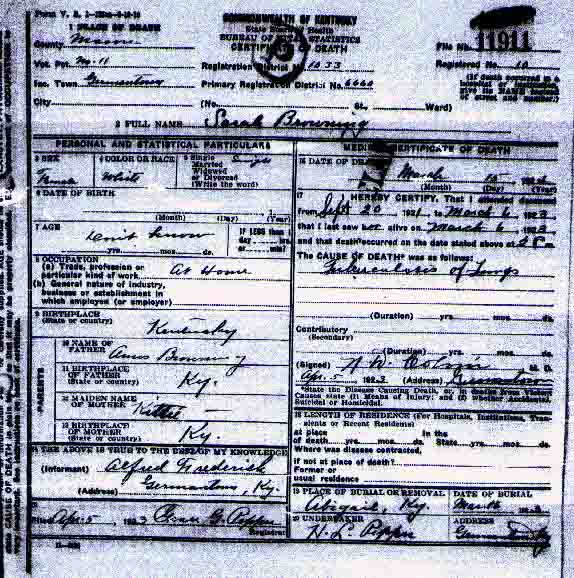 Form V. S.
COMMONWEALTH OF KENTUCKY
1 PLACE OF DEATH
State Health
BUREAU OF VITAL STATISTICS
CERTIFICATE OF DEATH
County Mason
File No. 11911
Vot. Pct. No. 11 Registration District No. 1033 Registered No. 10
Inc. Town Germantown Primary Registration District No. 6660
(If death occurred in a
hospital or
give its NAME
of street and number.)
City (No. St., Ward)
2 FULL NAME Sarah Browning
PERSONAL AND STATISTICAL PARTICULARS
3 SEX 4 COLOR OR RACE 5 Single
Married
Widowed
or Divorced
(Write the word)
White Single
6 DATE OF BIRTH
(Month) (Day) (Year)
7 AGE
Don't know
yrs. mos. ds.
IF LESS than
day hrs.
or min?
8 OCCUPATION
(a) Trade, profession or
particular kind of work At Home
(b) General nature of industry,
business or establishment in
which employed (or employer)
9 BIRTHPLACE
(State or country) Kentucky
10 NAME OF
FATHER Amos Browning
11 BIRTHPLACE
OF FATHER
(State or country) Ky.
12 MAIDEN NAME
OF MOTHER Kittie
13 BIRTHPLACE
OF MOTHER
(State or country) Ky.
PARENTS
14 THE ABOVE IS TRUE TO THE BEST OF MY KNOWLEDGE
(Informant) Alfred Frederick
(Address) Germantown, Ky.
15
Filed Apr. 5, 1923 G. Pepper
Registrar
MEDICAL CERTIFICATE OF DEATH
16 DATE OF DEATH
March
(Month) (Day) (Year)
17 I HEREBY CERTIFY, That I attended deceased
from Sept 20 1921 to March 6 1923
that I last saw her alive on March 6 1923
and that death occurred on the date stated above at
The CAUSE OF DEATH* was as follows:
Tuberculosis of Lungs
(Duration) yrs. mos. ds.
Contributory
(Secondary)
(Duration) yrs. mos. ds.
(Signed) M. D.
Apr. 5 1923 (Address) Germantown
*State the Disease Causing Death,
Causes state (1) Means of Injury; and (2) Whether Accidental,
Suicidal or Homicidal.
18 LENGTH OF RESIDENCE (For Hospitals, Institutions, Tran-
sients or Recent Residents)
at place In the
of death yrs. mos. ds. State yrs. mos. ds.
Where was disease contracted,
if not at place of death?
Former or
usual residence
19 PLACE OF BURIAL OR REMOVAL DATE OF BURIAL
Abigail, Ky. March
20 UNDERTAKER ADDRESS
H. L. Pepper